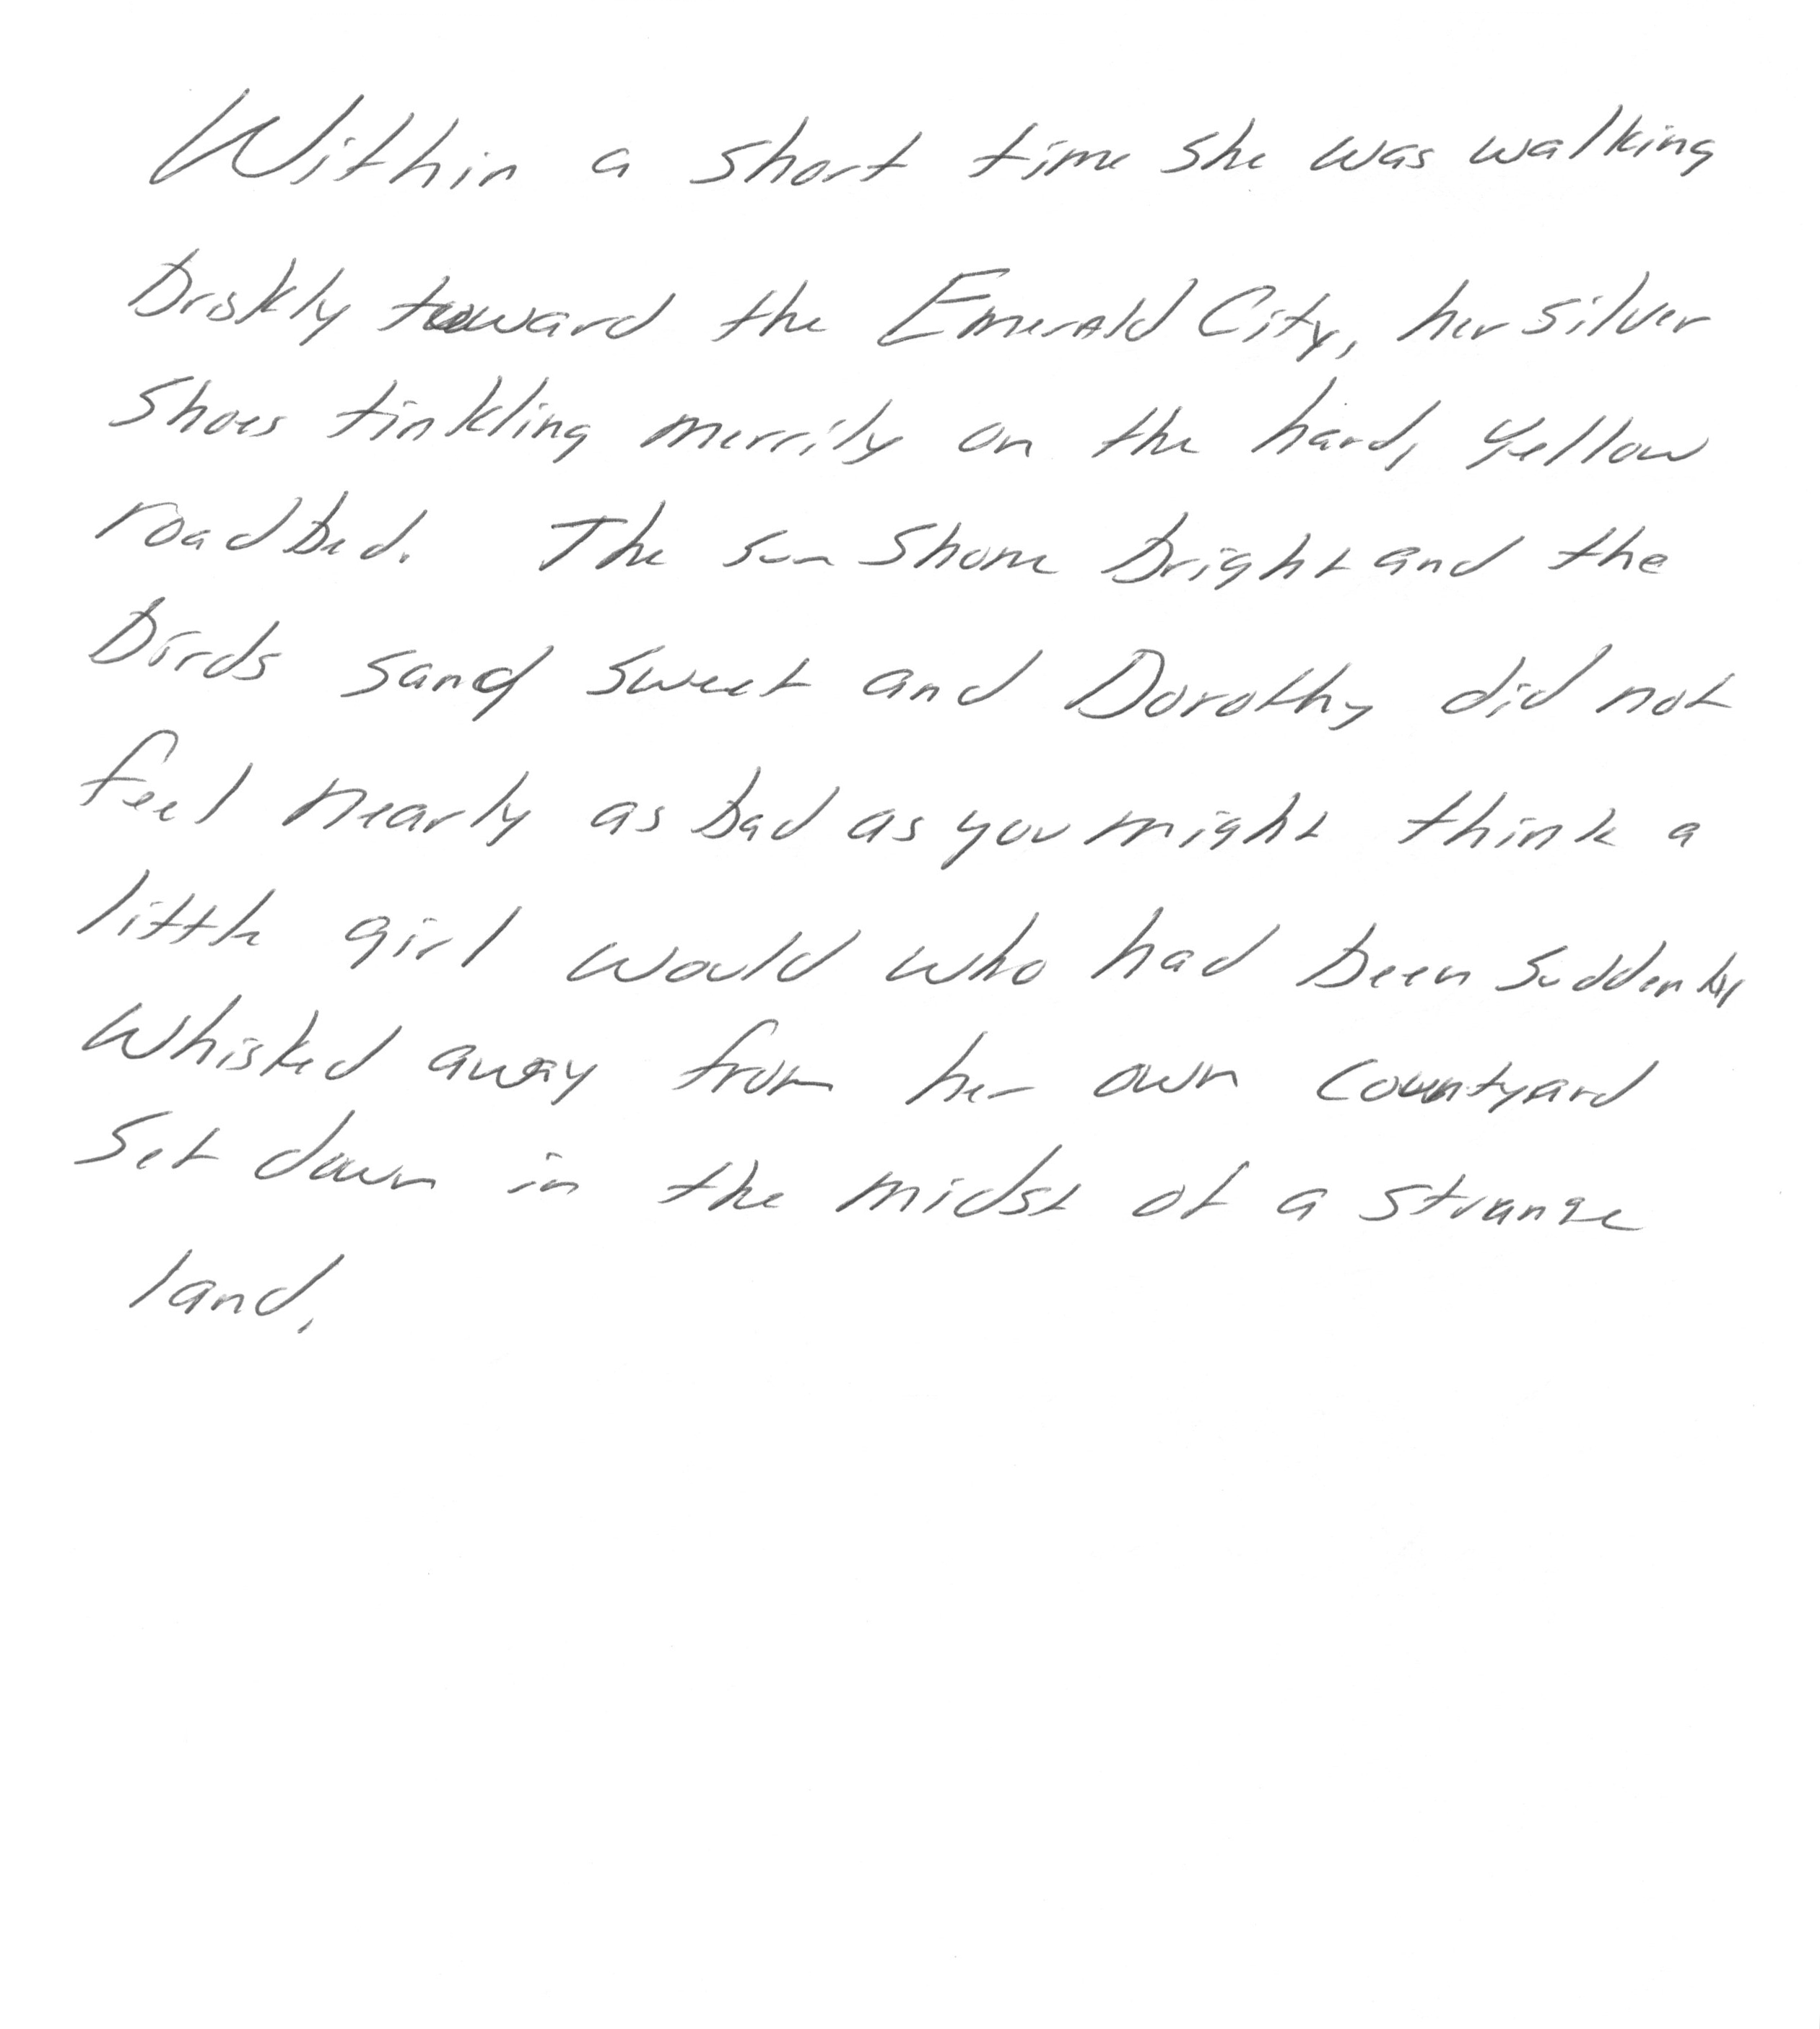 Within a short time she was walking
briskly toward the Emerald City, her silver
shoes tinkling merrily on the hard, yellow
roadbed. The sun shone bright and the
birds sang sweet and Dorothy did not
feel nearly as bad as you might think a
little girl would who had been suddenly
whisked away from her own countyard
set down in the midst of a strange
land.